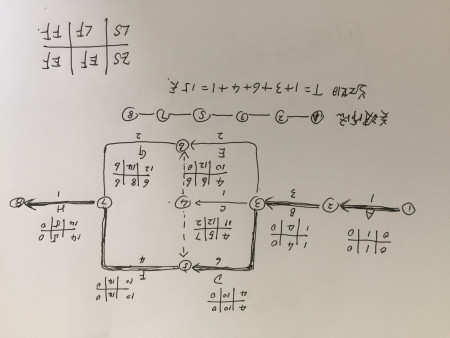 4 10 0
4 10 0
10 14 0
10 14 0
D
6
F
4
5
0 1 0
0 1 0
1 4 0
1 4 0
4 5 7
11 12
14 15 0
14 15 0
1
A
1
2
B
3
3
C
1
4
7
H
1
8
4 6
10 12 6
6 8 6
12 14 6
E
2
6
G
2
①—②—③—⑤—⑦—⑧
T = 1+3+6+4+1 = 15天
ES EF
LS LF FF